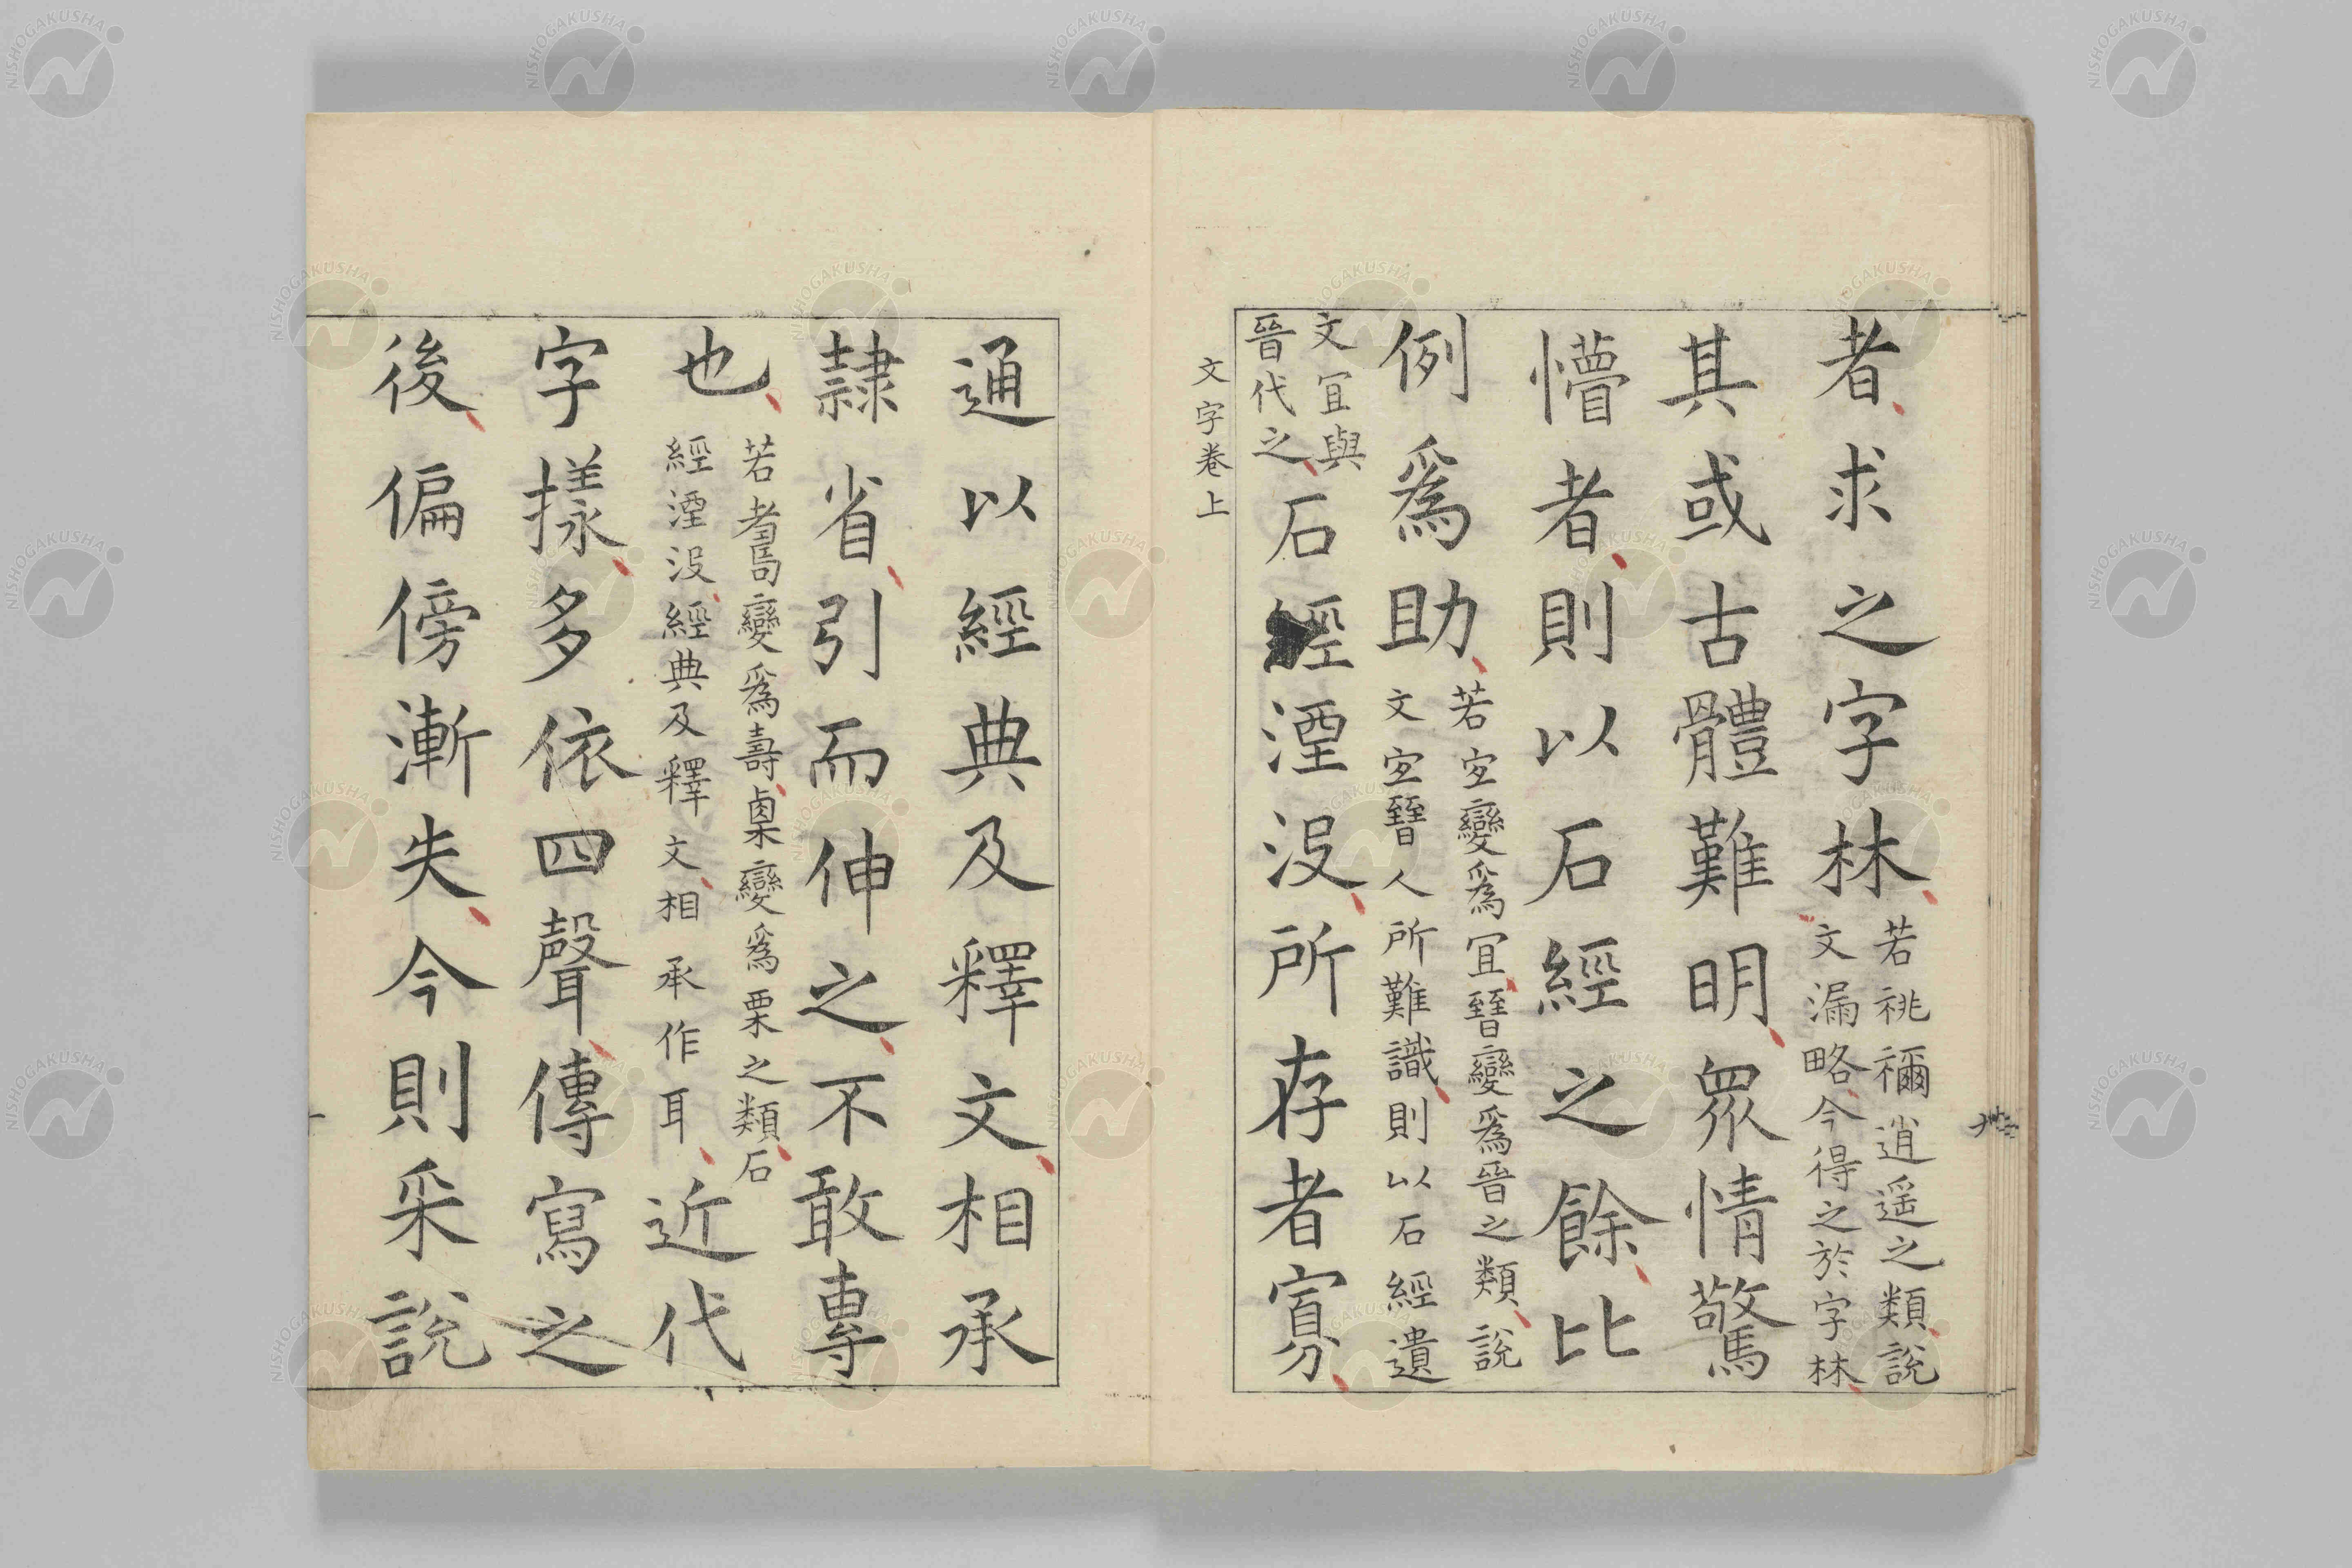 者求之字林若祧禰逍遥之類說
文漏略今得之於字林
其或古體難明衆情驚
懵者則以石經之餘比
例爲助若㝐變爲冝㬜變爲晉之類說
文㝐㬜人所難識則以石經遺
文冝與
晉代之石經湮沒所存者寡
文字卷上
通以經典及釋文相承
隷省引而伸之不敢專
也若𦒻變爲壽㮚變爲栗之類石
經湮沒經典及釋文相承作耳近代
字樣多依四聲傳寫之
後偏傍漸失今則采說
NISHOGAKUSHA